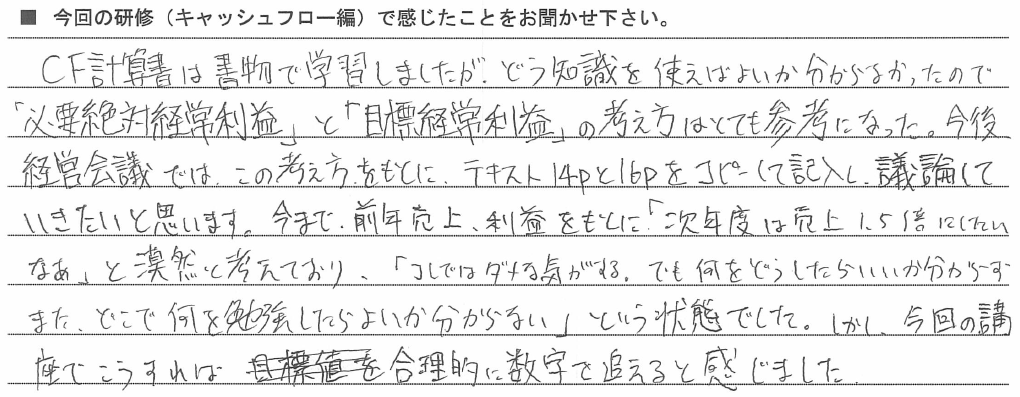 ■ 今回の研修（キャッシュフロー編）で感じたことをお聞かせ下さい。
CF計算書は書物で学習しましたが、どう知識を使えばよいか分からなかったので
「必要絶対経常利益」と「目標経常利益」の考え方はとても参考になった。今後
経営会議では、この考え方をもとに、テキスト14pと16pをコピーして記入し、議論して
いきたいと思います。今まで、前年売上、利益をもとに「次年度は売上1.5倍にしたい
なあ」と漠然と考えており、「コレではダメな気がする。でも何をどうしたらいいか分からず
また、どこで何を勉強したらよいか分からない」という状態でした。しかし、今回の講
座でこうすれば 目標値を合理的に数字で追えると感じました。